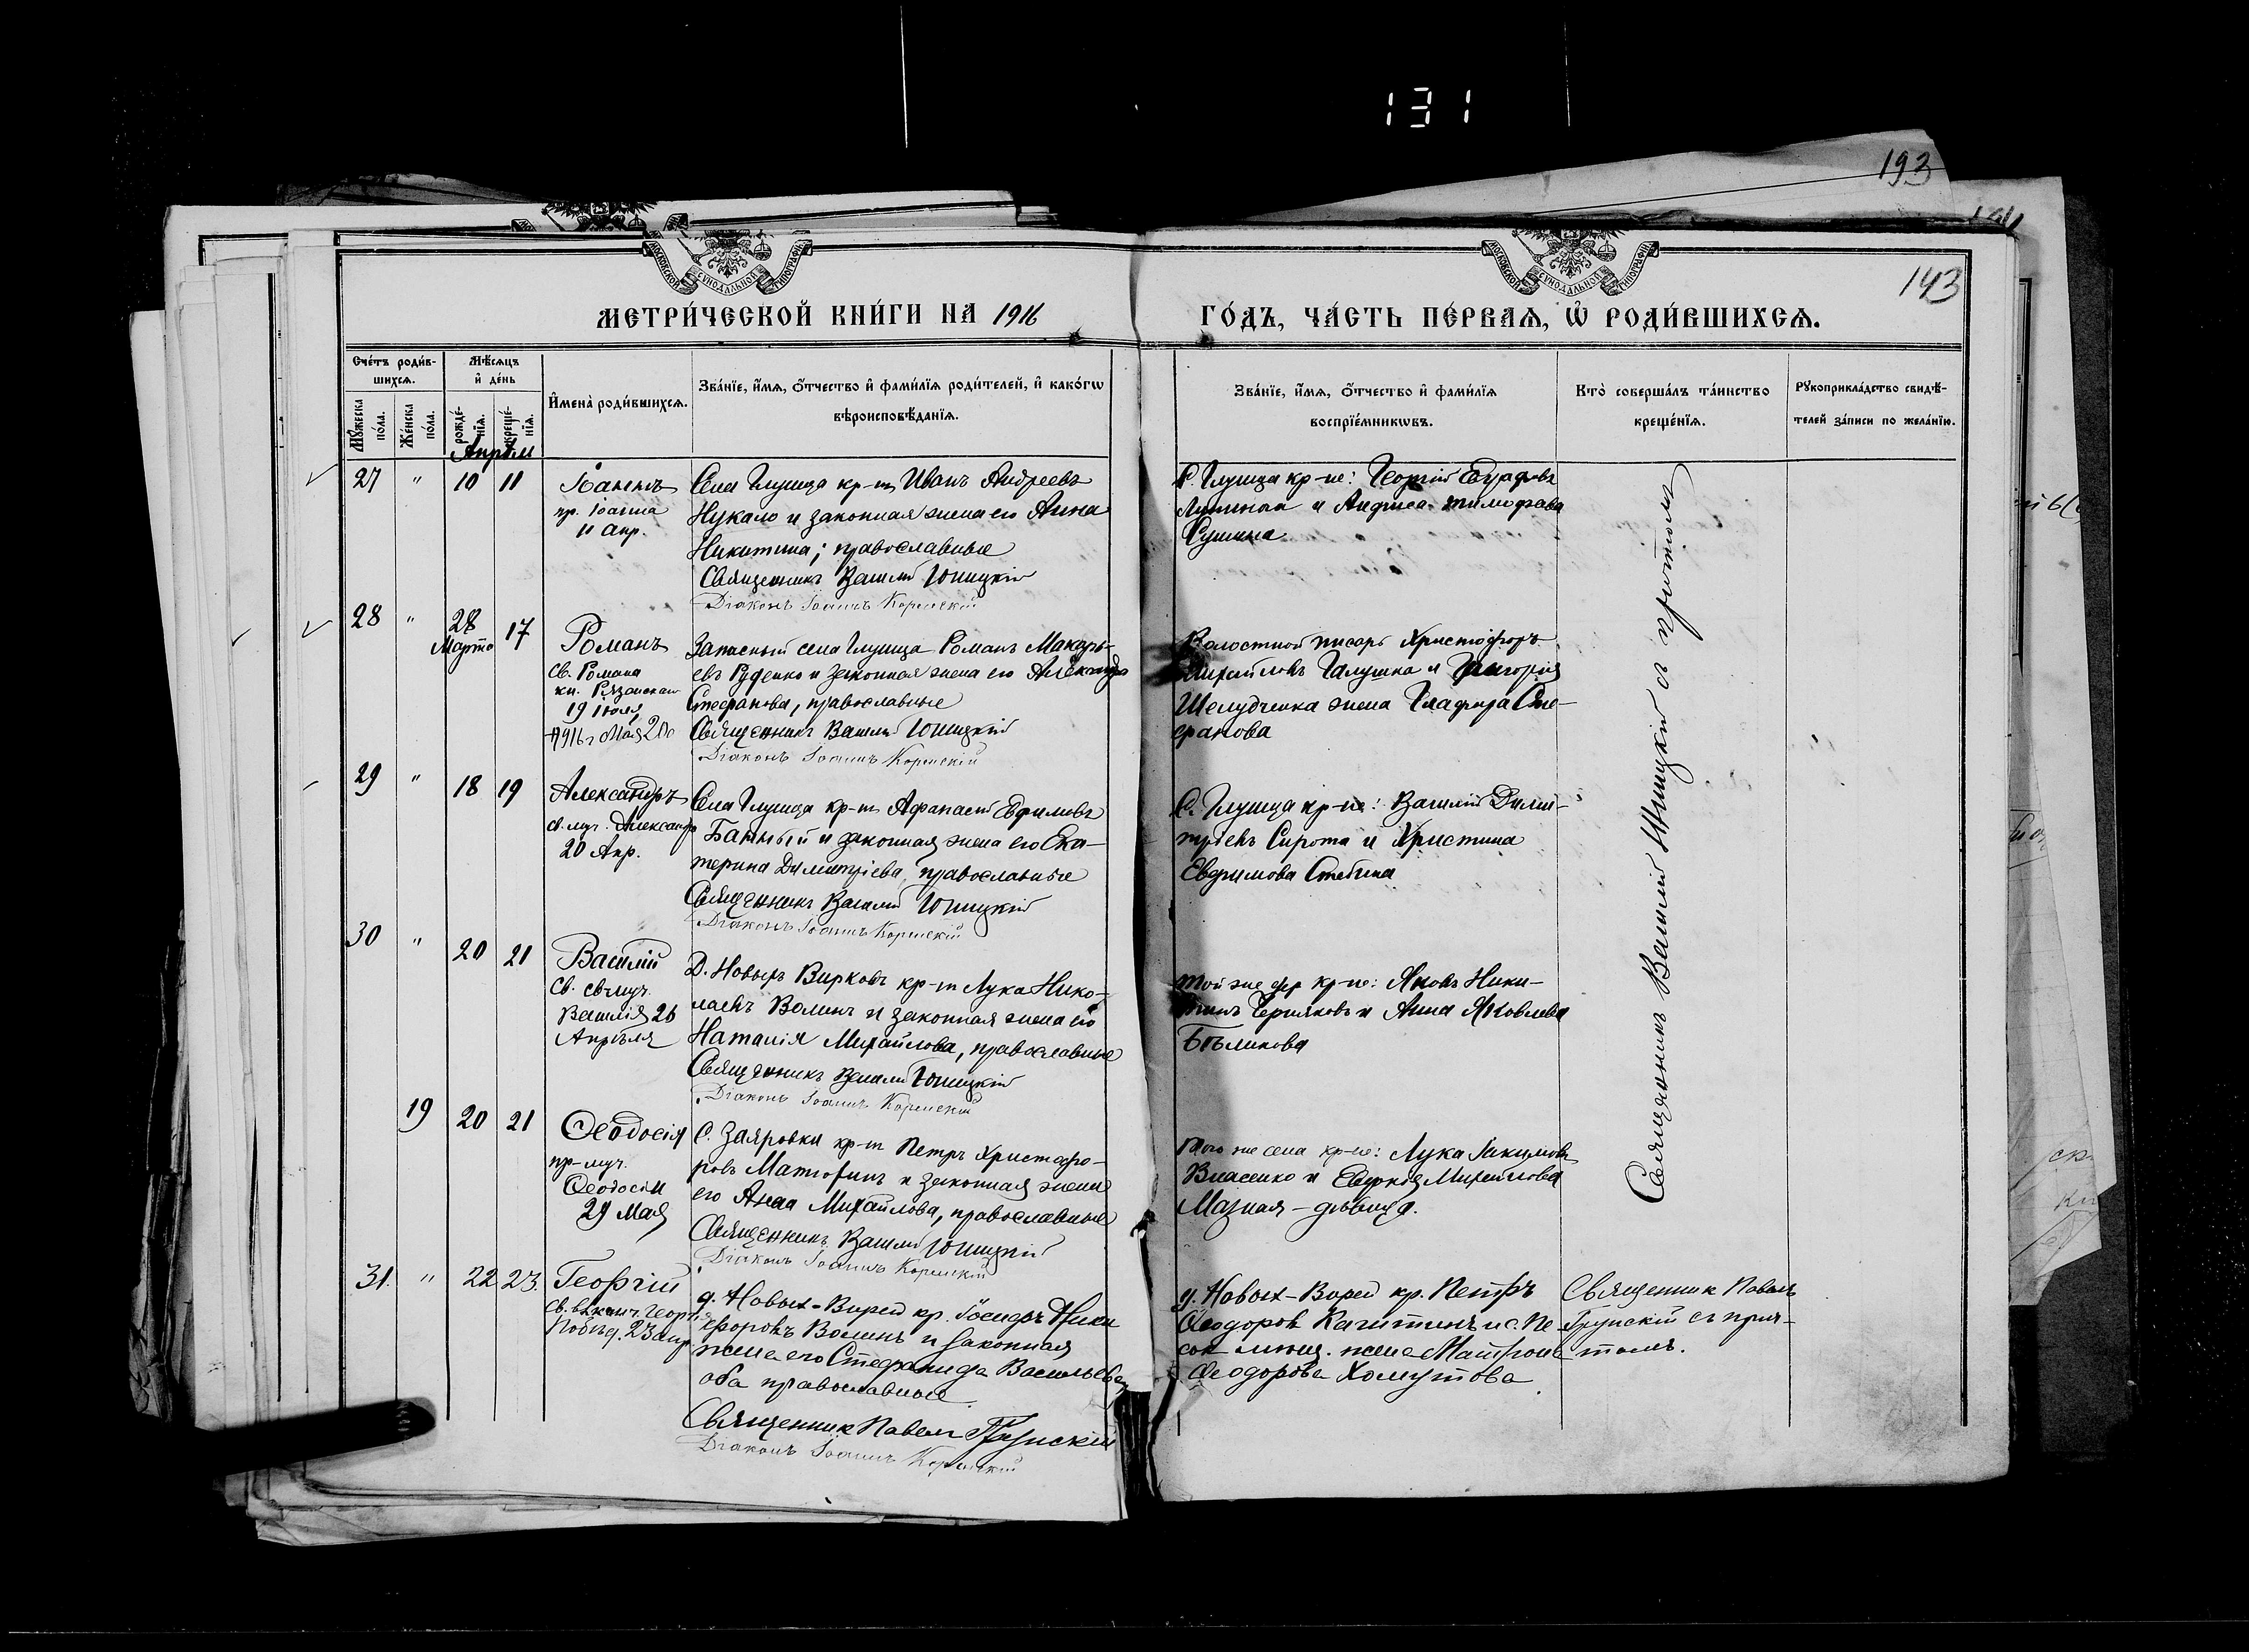 131
193
143
МОСКОВСКОЙ СУНОДАЛЬНОЙ ТИПОГРАФІИ
МОСКОВСКОЙ СУНОДАЛЬНОЙ ТИПОГРАФІИ
МЕТРИ́ЧЕСКОЙ КНИ́ГИ НА 1916
ГО́ДЪ, ЧА́СТЬ ПЕ́РВАѦ, Ѽ РОДИ́ВШИХСѦ.
Сче́тъ роди́в-
шихсѧ.
Мꙋ́жеска по́ла.
Же́нска по́ла.
Мѣ́сѧцъ
и҆ де́нь
рожде́-нїѧ.
креще́-нїѧ.
И҆мена̀ роди́вшихсѧ.
Зва́нїе, и҆́мѧ, ѻ҆́тчество и҆ фами́лїѧ роди́телей, и҆ како́гѡ
вѣроисповѣ́данїѧ.
Зва́нїе, и҆́мѧ, ѻ҆́тчество и҆ фами́лїѧ
воспрїе́мникѡвъ.
Кто̀ соверша́лъ та́инство
креще́нїѧ.
Рꙋкоприкла́дство свидѣ́-
телей за́писи по жела́нїю.
Апрѣль
27 " 10 11
Іоаннъ
пр. Іоанна
11 Апр.
Села Глушца кр-нъ Иванъ Андреевъ
и законная жена его Анна
Никитина; православные
Священникъ Василій Юницкій
Діаконъ Іоаннъ
С. Глушца кр-не: Георгій
и
28 " 28 Марта 17
Романъ
св. Романа
кн. Рязанскаго
19 Іюля
Запасный села Глушца Романъ Макарь-
евъ Руденко и законная жена его Александра
Стефанова, православные
Священникъ Василій Юницкій
Діаконъ Іоаннъ
Волостной писарь Христофоръ
Михайловъ Галушка и Григорія
Шелудченка жена Глафира Сте-
фанова
29 " 18 19
Александръ
св. муч. Александра
20 Апр.
Села Глушца кр-нъ Афанасій Ефимовъ
и законная жена его Ека-
терина Димитріева, православные
Священникъ Василій Юницкій
Діаконъ Іоаннъ
С. Глушца кр-не: Василій Дими-
тріевъ Сирота и Христина
Евфимова
30 " 20 21
Василій
св. св-муч.
Василія 26
Апрѣля
Д. Новыхъ Вирковъ кр-нъ Лука Нико-
лаевъ Волинъ и законная жена его
Наталія Михайлова, православные
Священникъ Василій Юницкій
Діаконъ Іоаннъ
Той же дер кр-не: Яковъ Ники-
тинъ Черняковъ и Анна Яковлева
Бѣликова
19 20 21
Ѳеодосія
пр-муч.
Ѳеодосіи
29 Мая
С. Заяровки кр-нъ Петръ Христофо-
ровъ Матюфинъ и законная жена
его Анна Михайлова, православные
Священникъ Василій Юницкій
Діаконъ Іоаннъ
Того же села кр-не: Лука Іакимовъ
Власенко и Михайлова
Мазная – дѣвица.
Священникъ Василій Юницкій съ причтомъ
31. " 22 23.
Георгій
св. Георгія
Побѣд. 23 апр.
д. Новых-Вирей кр. Іосифъ Ники
форовъ Волинъ и законная
жена его Стефанида Васильева
оба православные
Священник Павелъ
Діаконъ Іоаннъ
д. Новых-Вирей кр. Петръ
Ѳеодоров и с. Пе-
сок жена Матрона
Ѳеодорова Хомутова
Священник Павелъ
съ прич-
томъ.